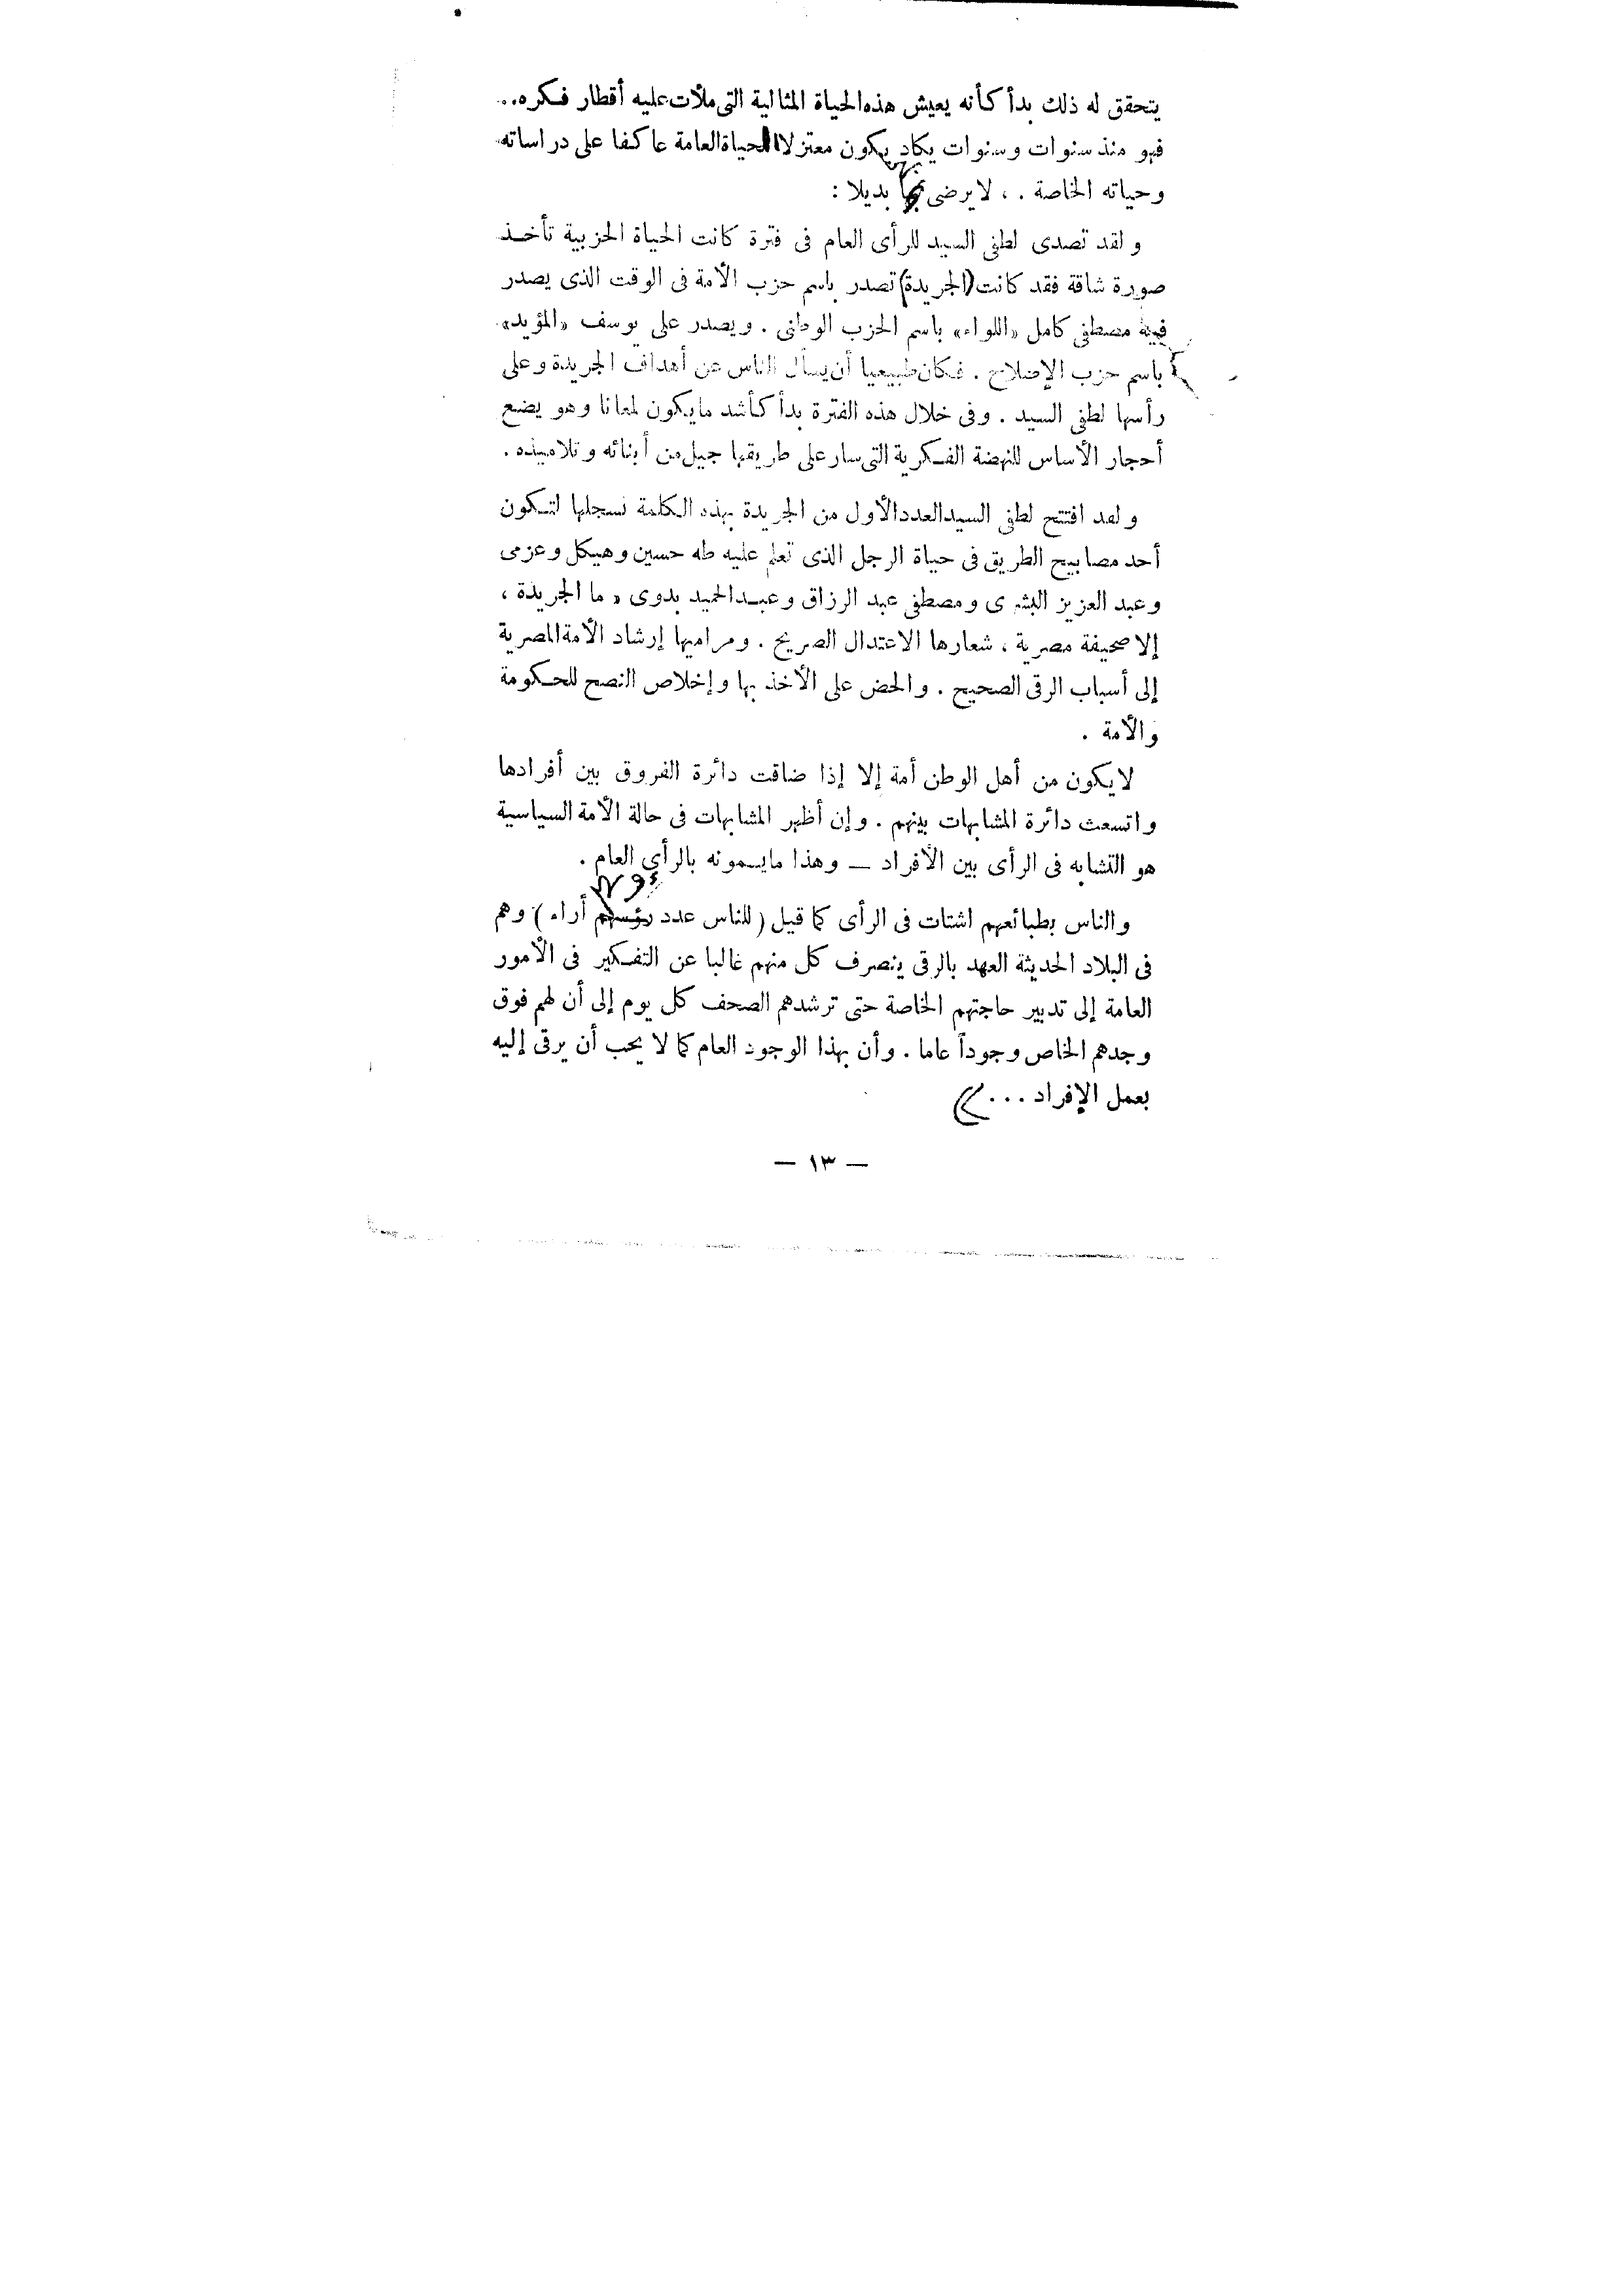 يتحقق له ذلك بدأ كأنه يعيش هذه الحياة المثالية التى ملأت عليه أقطار فكره..
فهو منذ سنوات وسنوات يكاد يكون معتزلا الحياة العامة عاكفا على دراساته
وحياته الخاصة . ، لا يرضى بديلا :
ولقد تصدى لطفى السيد للرأى العام فى فترة كانت الحياة الحزبية تأخذ
صورة شاقة فقد كانت (الجريدة) تصدر باسم حزب الأمة فى الوقت الذى يصدر
فيه مصطفى كامل «اللواء» باسم الحزب الوطنى . ويصدر على يوسف «المؤيد»
باسم حزب الإصلاح . فكان طبيعيا أن يسأل الناس عن أهداف الجريدة وعلى
رأسها لطفى السيد . وفى خلال هذه الفترة بدأ كأشد ما يكون لمعانا وهو يضع
أحجار الأساس للنهضة الفكرية التى سار على طريقها جيل من أبنائه وتلاميذه .
ولقد افتتح لطفى السيد العدد الأول من الجريدة بهذه الكلمة نسجلها لتكون
أحد مصابيح الطريق فى حياة الرجل الذى تعلم عليه طه حسين وهيكل وعزمى
وعبد العزيز البشرى ومصطفى عبد الرازق وعبد الحميد بدوى « ما الجريدة ،
إلا صحيفة مصرية ، شعارها الاعتدال الصريح . ومراميها إرشاد الأمة المصرية
إلى أسباب الرقى الصحيح . والحض على الأخذ بها وإخلاص النصح للحكومة
والأمة .
لا يكون من أهل الوطن أمة إلا إذا ضاقت دائرة الفروق بين أفرادها
واتسعت دائرة المشابهات بينهم . وإن أظهر المشابهات فى حالة الأمة السياسية
هو التشابه فى الرأى بين الأفراد — وهذا ما يسمونه بالرأى العام .
والناس بطبائعهم اشتات فى الرأى كما قيل ( للناس عدد رؤسهم أراء ) وهم
فى البلاد الحديثة العهد بالرقى ينصرف كل منهم غالبا عن التفكير فى الأمور
العامة إلى تدبير حاجتهم الخاصة حتى ترشدهم الصحف كل يوم إلى أن لهم فوق
وجدهم الخاص وجوداً عاما . وأن بهذا الوجود العام كما لا يحب أن يرقى إليه
بعمل الإفراد ... »
— ١٣ —